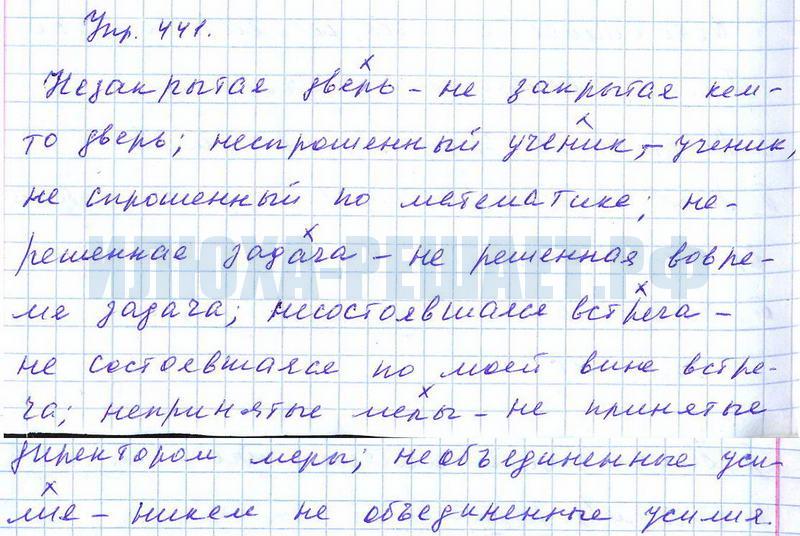 Упр. 441.
Незакрытая дверь – не закрытая кем-
то дверь; неспрошенный ученик, – ученик,
не спрошенный по математике; не-
решенная задача – не решенная вовре-
мя задача; несостоявшаяся встреча –
не состоявшаяся по моей вине встре-
ча; непринятые меры – не принятые
директором меры; необъединенные уси-
лия – никем не объединенные усилия.
ИЛЮХА-РЕШАЕТ.РФ